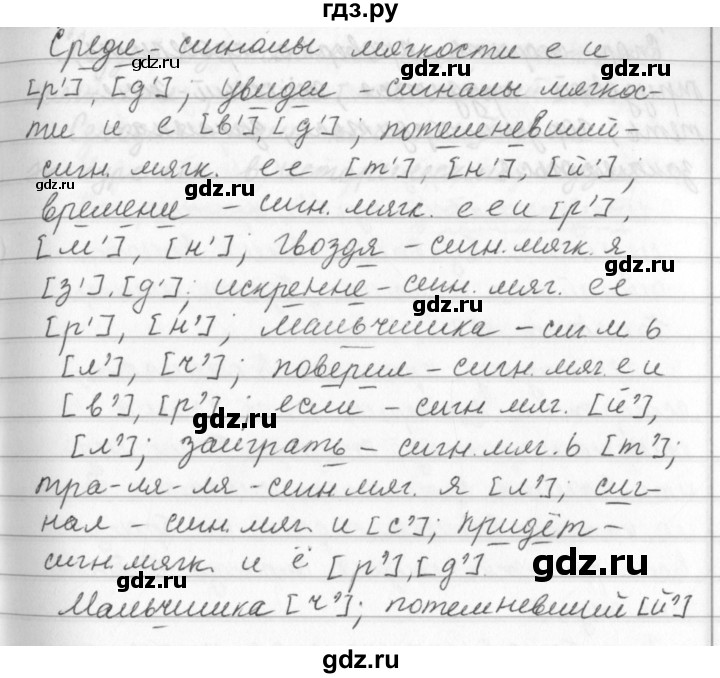 гдз.ру
Среди - сигналы мягкости е и
gdz.ru gdz.ru
[р'], [д'], увидел - сигналы мягкос-
ти и е [в'] [д'], потемневший -
gdz.ru
сигн. мягк. е е [т'], [н'], [й'],
gdz.ru
времени - сигн. мягк. е е и [р'],
[м'], [н'], гвоздя - сигн. мягк. я
gdz.ru
[з'], [д'], искренне - сигн. мяг. е е
[р'], [н'], мальчишка - сиг м ь
[л'], [ч'], поверил - сигн. мяг. е и
[в'], [р'], если - сигн. мяг. [й'],
gdz.ru
[л'], заиграть - сигн. мяг. ь [т'],
тра-ля-ля - сигн. мяг. я [л'], сиг-
нал - сигн. мяг. и [с'], придёт -
сигн. мягк. и ё [р'], [д'].
gdz.ru
gdz.ru
Мальчишка [ч'], потемневший [й']
gdz.ru